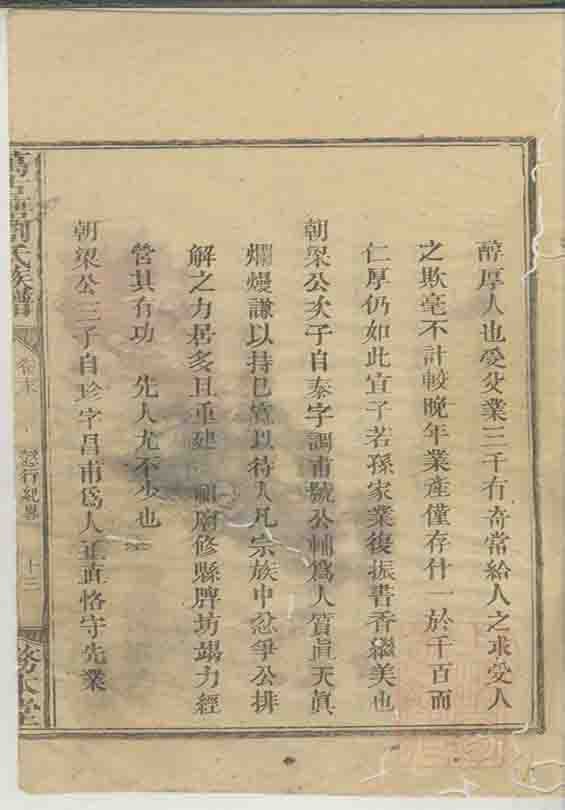 醇厚人也受父業三千有奇常給人之求受人
之欺毫不計較晚年業產僅存什一於千百而
仁厚仍如此宜子若孫家業復振書香繼美也
朝梁公次子自泰字調甫號公輔爲人質真天真
爛熳謙以持己寬以待人凡宗族中忿爭公排
解之力居多且重建 祠廟修縣牌坊竭力經
營其有功 先人尤不少也
朝梁公三子自珍字昌甫爲人正直恪守先業
劉氏族譜
卷末
懿行紀畧
十三